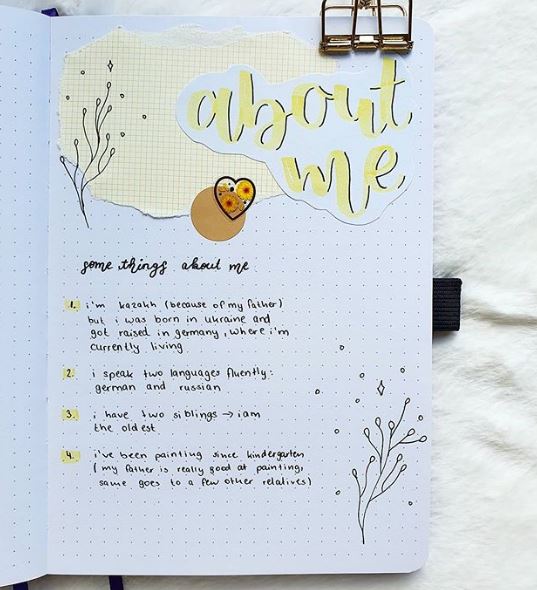 about
me
some things about me
1. i'm kazakh (because of my father)
but i was born in ukraine and
got raised in germany, where i'm
currently living
2. i speak two languages fluently:
german and russian
3. i have two siblings → i am
the oldest
4. i've been painting since kindergarten
(my father is really good at painting,
same goes to a few other relatives)